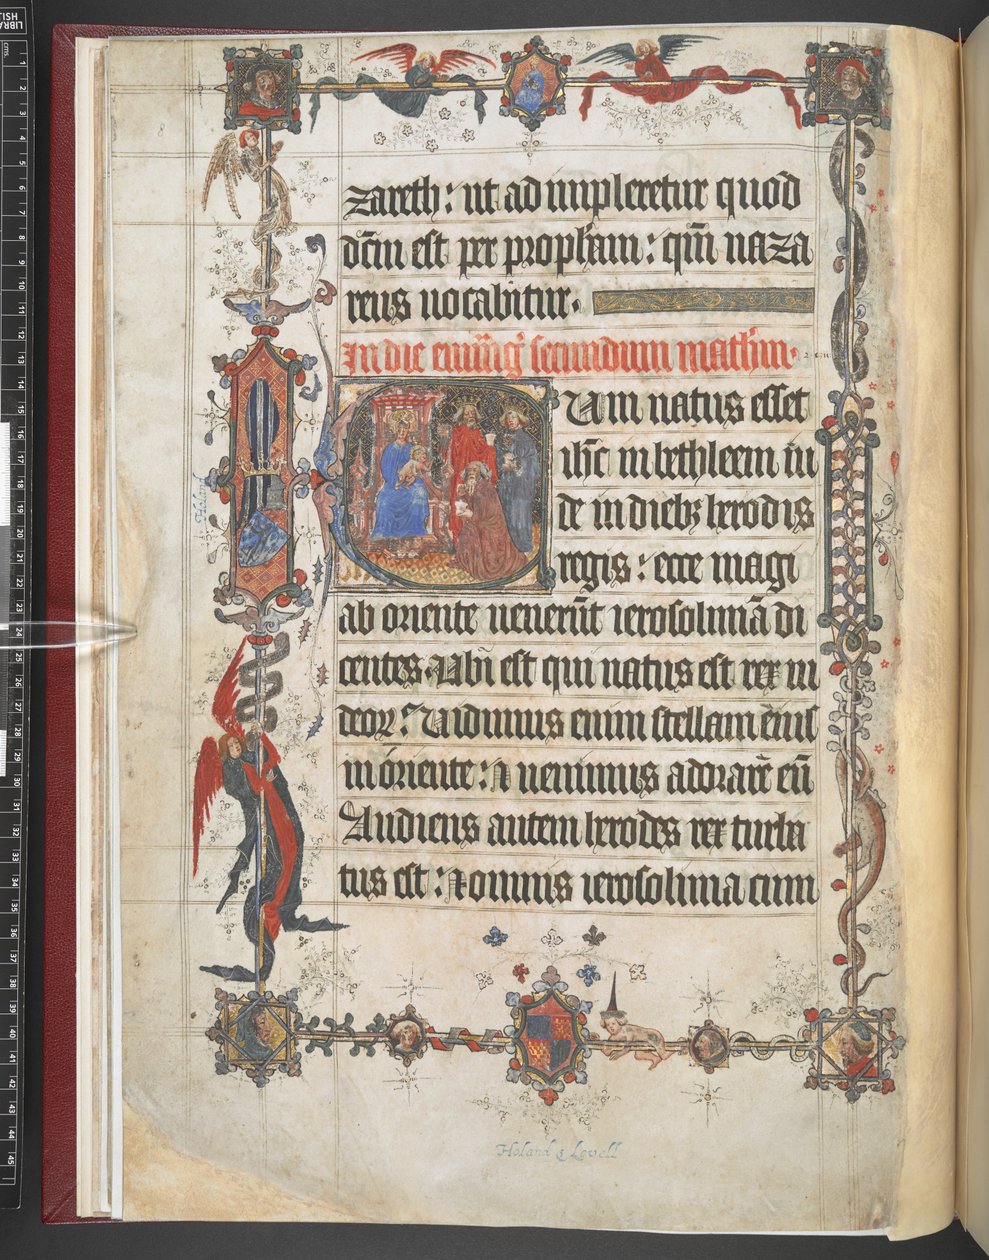 zareth: ut adimpleretur quod
dc̄m est per proph̄am: qm̄ naza
reus uocabitur.
In die
secundum math̄m.
Cum natus esset
ih̄c in bethleem iu
de in dieb; herodis
regis: ecce magi
ab oriente uenerūt ierosolimā di
centes. Ubi est qui natus est rex iu
deoꝝ: Uidimus enim stellam eius
in oriente: ⁊ uenimus adorare eū
Audiens autem herodes rex turba
tus est: ⁊ omnis ierosolima cum
Holand
Holand & Lovell